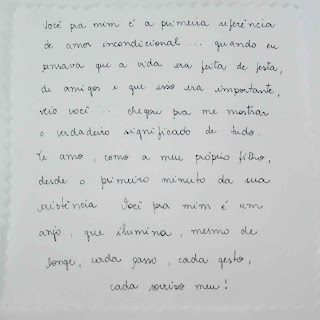 Você pra mim é a primeira referência
de amor incondicional... quando eu
pensava que a vida era feita de festa,
de amigos e que isso era importante,
veio você... chegou pra me mostrar
o verdadeiro significado de tudo.
Te amo, como a meu próprio filho,
desde o primeiro minuto da sua
existência Você pra mim é um
anjo, que ilumina, mesmo de
longe, cada passo, cada gesto,
cada sorriso meu!